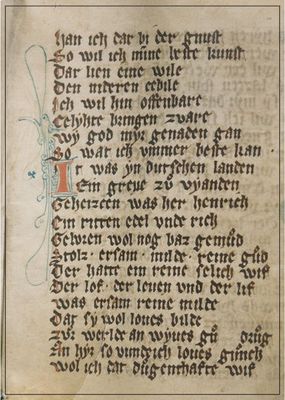 han ich dar bi der gunst
So wil ich mine beste kunst
Dar lien eine wile
Den nideren
Ich wil hin offenbare
bringen zware
wy god myr genaden gan
So wat ich ymmer beste kan
It was yn dutschen landen
Ein greve zů vyanden
Geheizeen was her henrich
Ein ritter edel unde rich
wol nog baz gemůd
Stolz ersam milde reine gůd
Der hatte ein reine selich wif
Der lof der leven und der lif
was ersam reine milde
Dat sy wol loves bilde
werlde an wyves
An hyr so vundich loves
wol ich dat dugenthafte wif